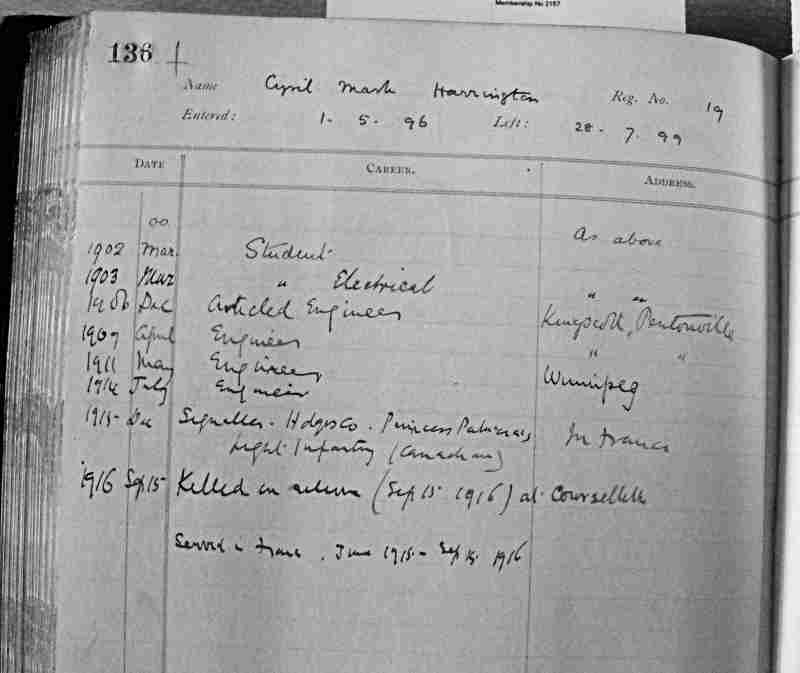 Membership No 2157
136
Name Cyril Mark Harrington Reg. No. 19
Entered: 1. 5. 96 Left: 28. 7. 99
DATE CAREER. ADDRESS.
00
1902 Mar. Student As above
1903 Mar " Electrical " "
1906 Dec Articled Engineer Kingscott, Pentonville
1907 April Engineer " "
1911 May Engineer Winnipeg
1914 July Engineer
1915 Dec Signaller. Hdqrs Co. Princess Patricia's In France
Light Infantry (Canadian)
1916 Sep 15 Killed in action (Sep 15 1916) at Courcellette
Served in France, June 1915 - Sep 15 1916